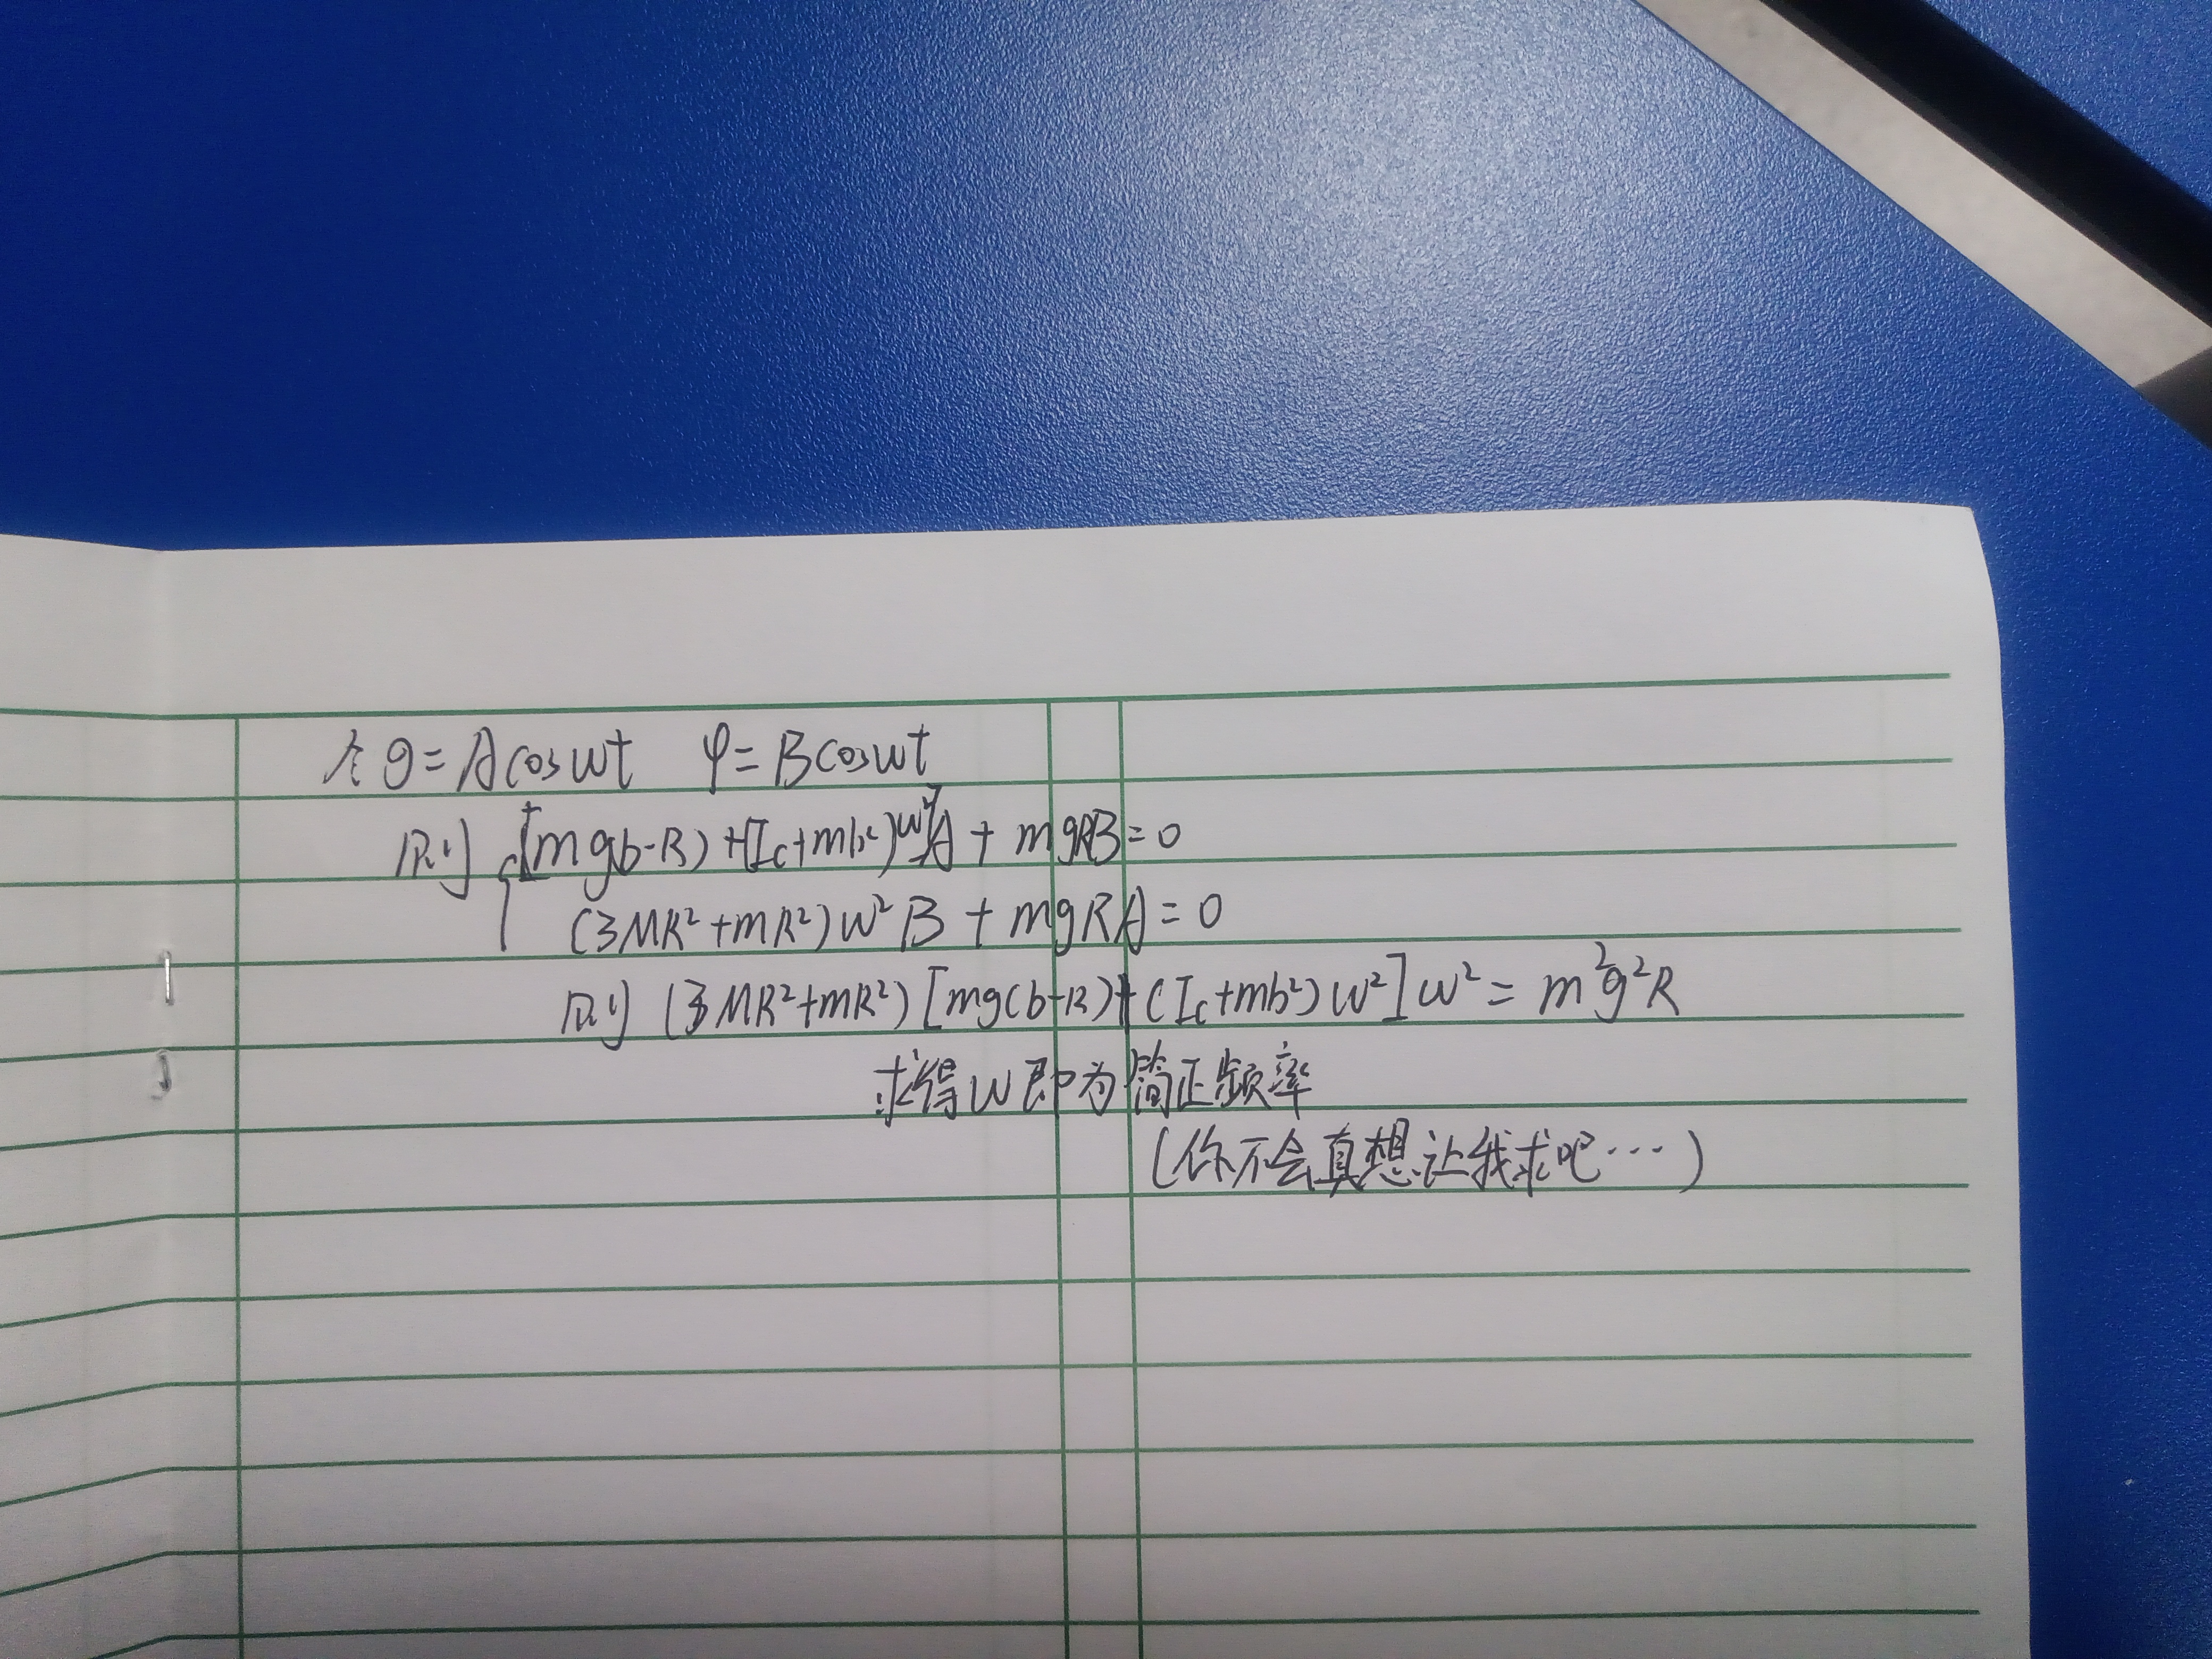 令 θ=Acosωt φ=Bcosωt
则 {[mg(b-R)+(Ic+mb²)ω²]A + mgRB=0
(3MR²+mR²)ω²B + mgRA=0
则 (3MR²+mR²)[mg(b-R)+(Ic+mb²)ω²]ω²= m²g²R
求得ω即为简正频率
(你不会真想让我求吧…)